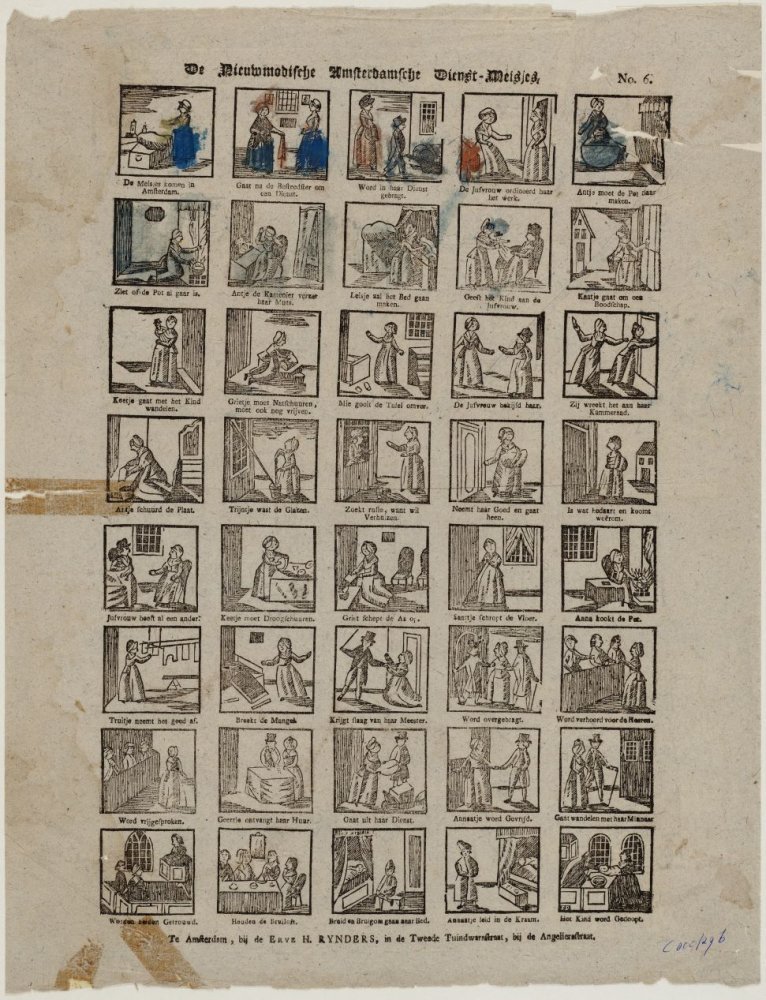 De Nieuwmodische Amsterdamsche Dienst-Meisjes,
No. 6.
De Meisjes komen in
Amsterdam.
Gaat na de Besteedster om
een Dienst.
Word in haar Dienst
gebragt.
De Jufvrouw ordineerd haar
het werk.
Antje moet de Pot klaar
maken.
Ziet of de Pot al gaar is.
Antje de Kamenier
haar Muts.
Leisje zal het Bed gaan
maken.
Geeft het Kind aan de
Jufvrouw.
Kaatje gaat om een
Boodschap.
Keetje gaat met het Kind
wandelen.
Grietje moet Natschuuren,
moet ook nog vrijven.
Mie gooit de Tafel omver.
De Jufvrouw bekijfd haar.
Zij wreekt het aan haar
Kammeraad.
Antje schuurd de Plaat.
Trijntje wast de Glazen.
Zoekt rusie, want wil
Verhuizen.
Neemt haar Goed en gaat
heen.
Is wat bedaart en koomt
weêrom.
Jufvrouw heeft al een ander!
Keetje moet Droogschuuren.
Griet schept de As op.
Saartje schropt de Vloer.
Anna kookt de Pot.
Truitje neemt het goed af.
Breekt de Mangel.
Krijgt slaag van haar Meester.
Word overgebragt.
Word verhoord voor de Heeren.
Word vrijgesproken.
Geertje ontvangt haar Huur.
Gaat uit haar Dienst.
Annaatje word Gevrijd.
Gaat wandelen met haar Minnaar
Worden zamen Getrouwd.
Houden de Bruiloft.
Bruid en Bruigom gaan naar Bed.
Annaatje leid in de Kraam.
Het Kind word Gedoopt.
Te Amsterdam, bij de ERVE H. RYNDERS, in de Tweede Tuindwarsstraat, bij de Angeliersstraat.